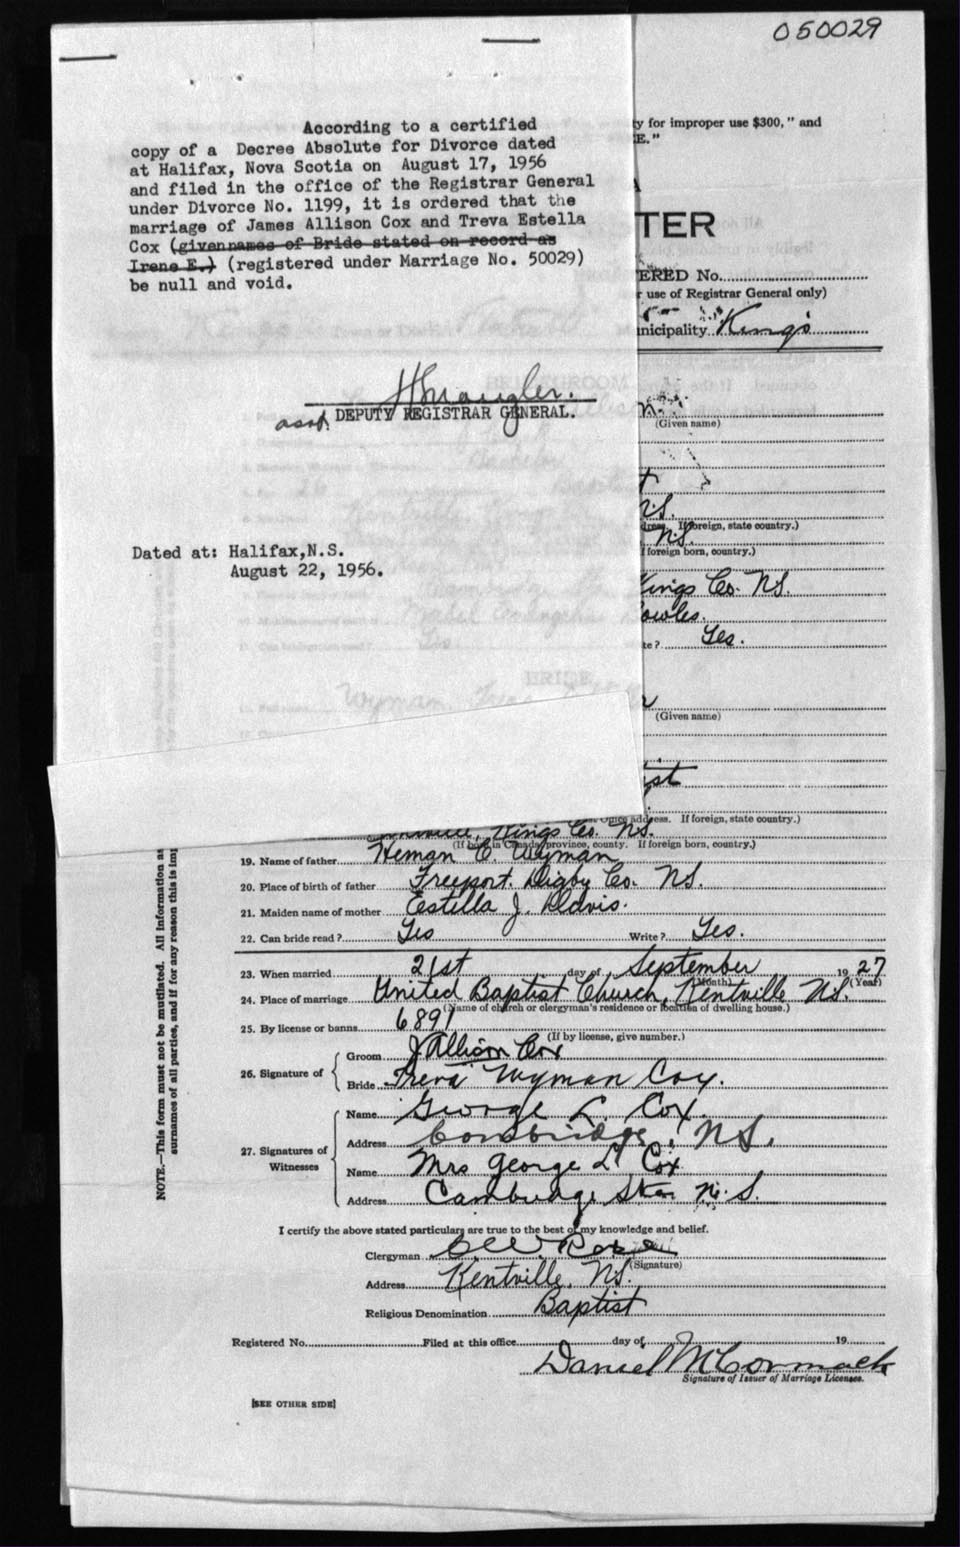 050029
According to a certified
copy of a Decree Absolute for Divorce dated
at Halifax, Nova Scotia on August 17, 1956
and filed in the office of the Registrar General
under Divorce No. 1199, it is ordered that the
marriage of James Allison Cox and Treva Estella
Cox (givennames of Bride stated on record as
Irene E.) (registered under Marriage No. 50029)
be null and void.
asst. DEPUTY REGISTRAR GENERAL.
Dated at: Halifax,N.S.
August 22, 1956.
y for improper use $300," and
E."
TER
ERED No.
r use of Registrar General only)
nicipality Kings
(Given name)
N.S.
dress. If foreign, state country.)
N.S.
f foreign born, country.)
ings Co. N.S.
owles.
te? Yes.
BRIDE
Wyman
(Given name)
ist
Office address. If foreign, state country.)
Kings Co. N.S.
(If born in Canada province, county. If foreign born, country.)
19. Name of father Heman C. Wyman
20. Place of birth of father Freeport. Digby Co. N.S.
21. Maiden name of mother Estella J. Davis.
22. Can bride read? Yes Write? Yes.
23. When married 21st day of September 1927
(Month) (Year)
24. Place of marriage United Baptist Church, Kentville N.S.
(Name of church or clergyman's residence or location of dwelling house.)
25. By license or banns 6891
(If by license, give number.)
26. Signature of
Groom J Allison Cox
Bride Treva Wyman Cox.
27. Signatures of Witnesses
Name George L. Cox.
Address Cambridge, N.S.
Name Mrs George L Cox
Address Cambridge Sta. N.S.
I certify the above stated particulars are true to the best of my knowledge and belief.
Clergyman
(Signature)
Address Kentville, N.S.
Religious Denomination Baptist
Registered No. Filed at this office day of 19
Daniel McCormack
Signature of Issuer of Marriage Licenses.
[SEE OTHER SIDE]
NOTE.—This form must not be mutilated. All information as
surnames of all parties, and if for any reason this is imp